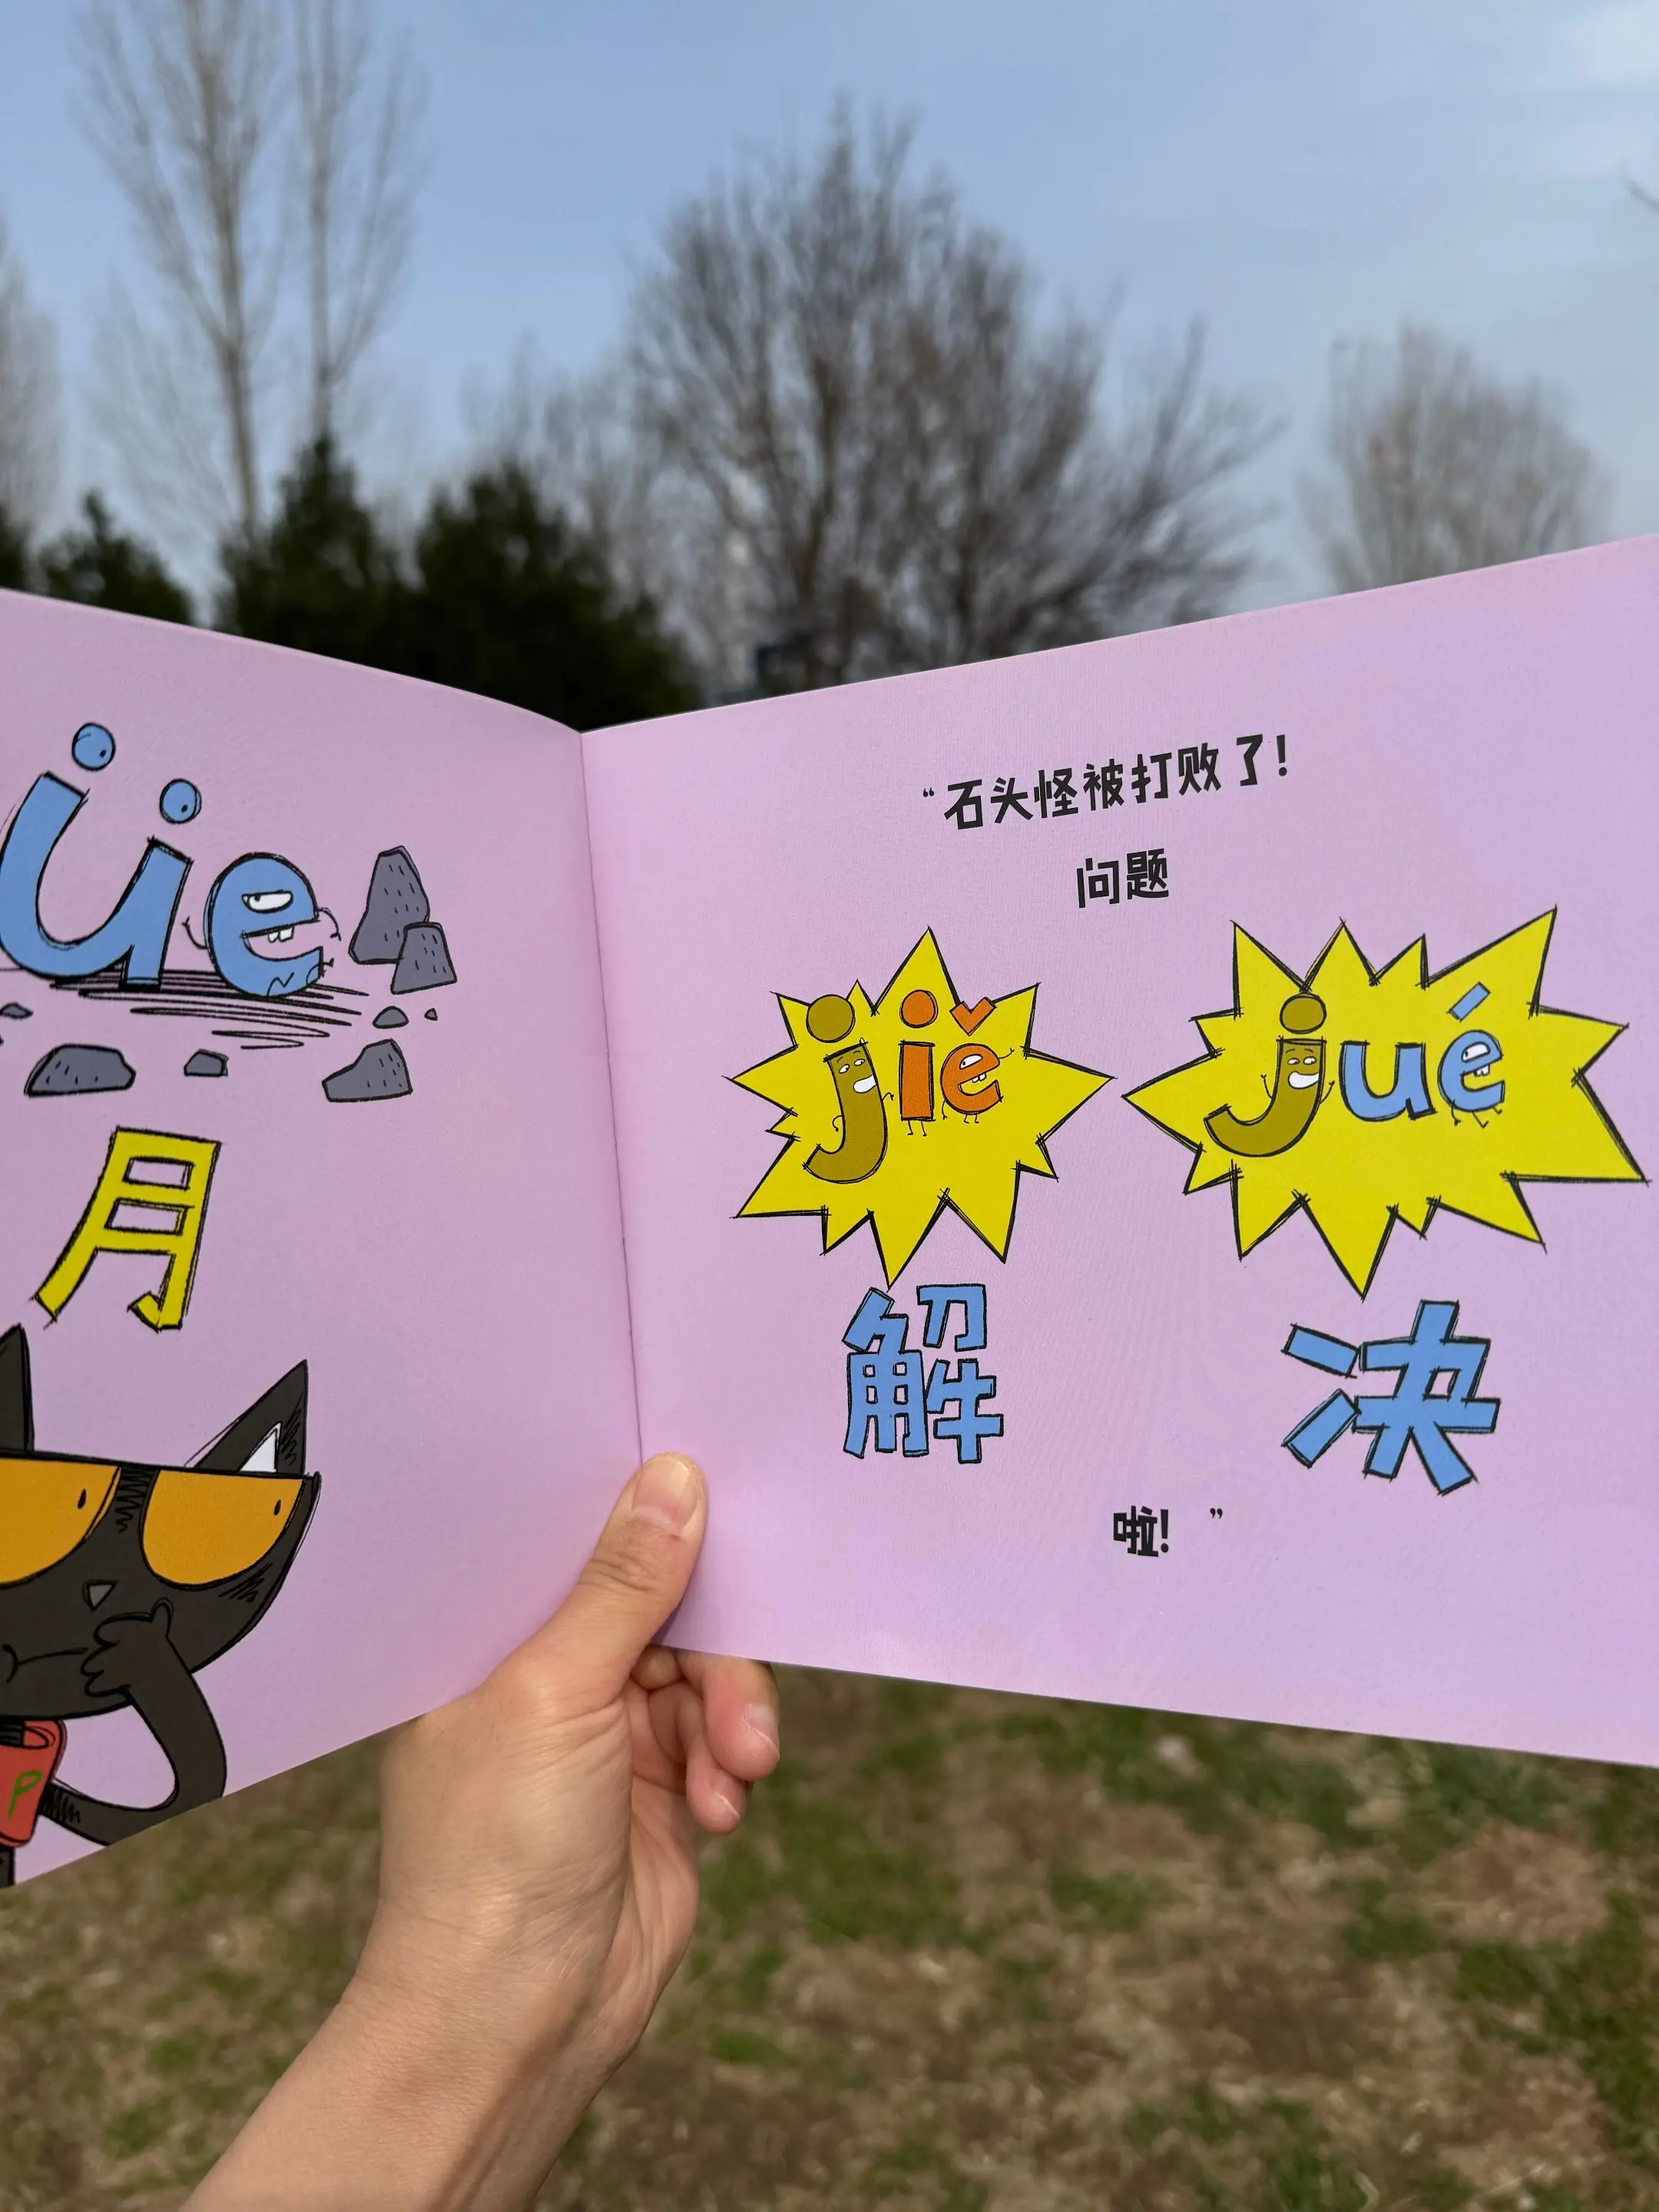 üe
月
P
“石头怪被打败了！
问题
jiě jué
解 决
啦！”